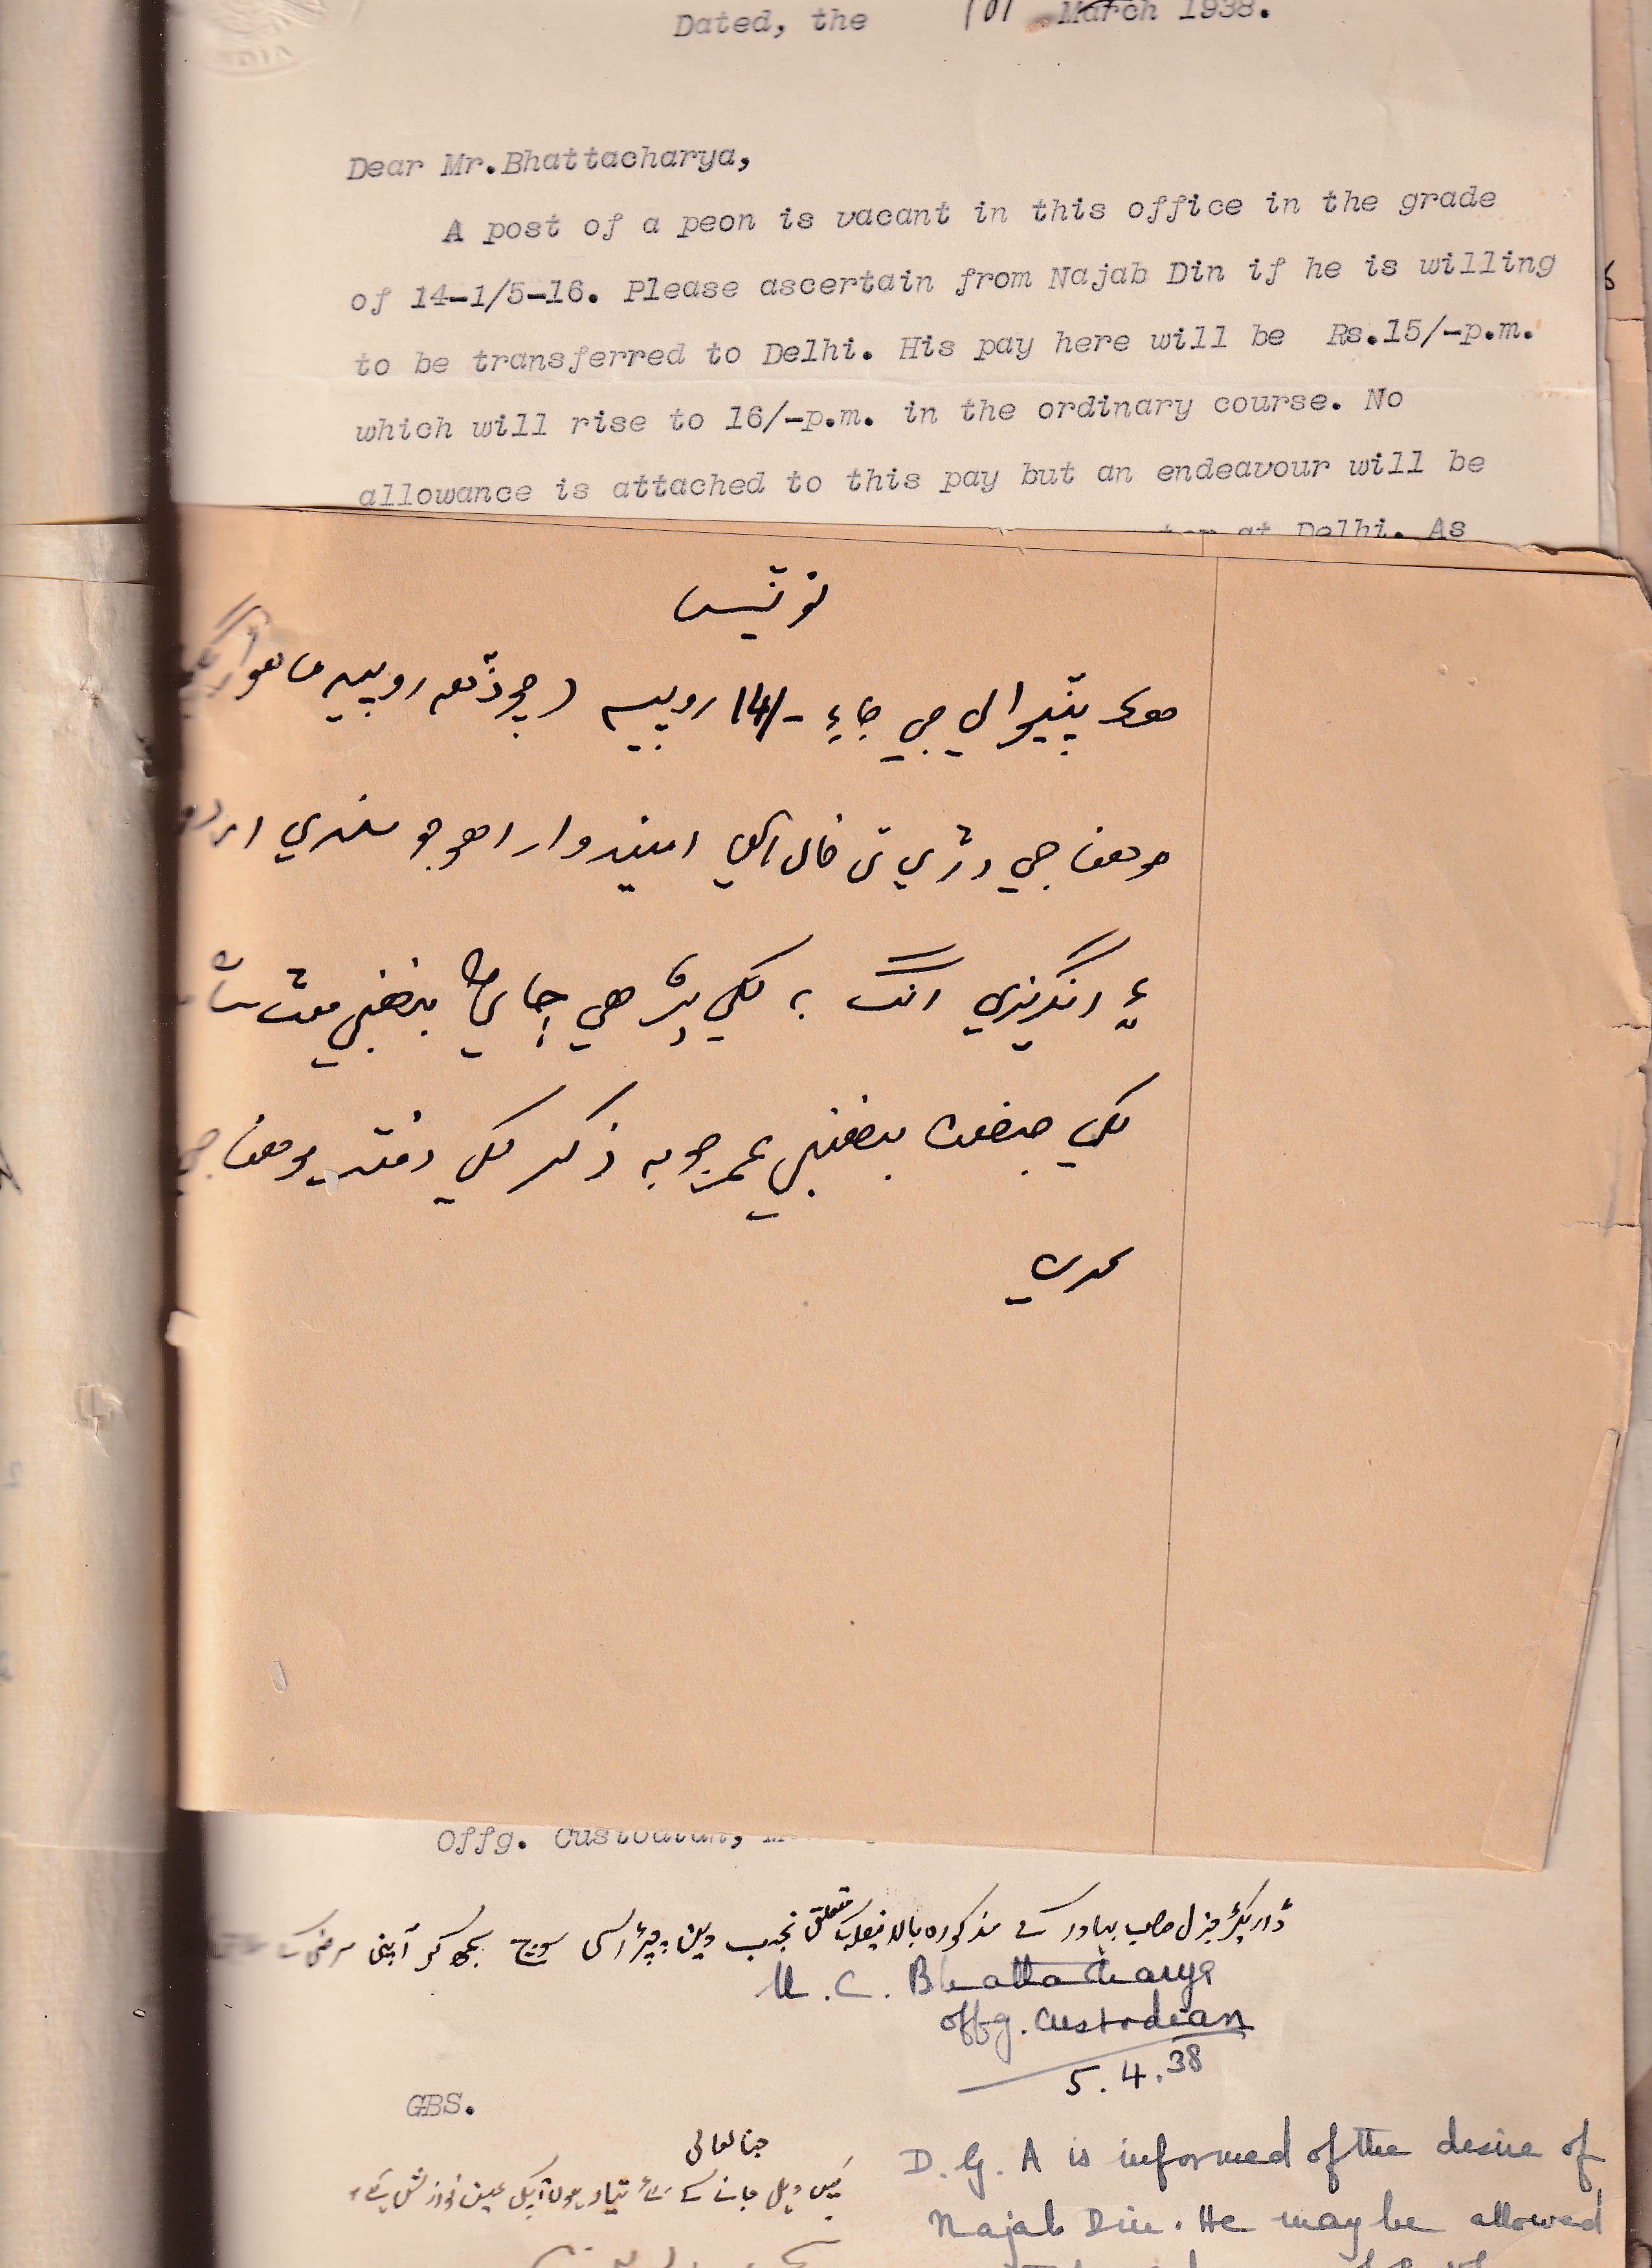 Dated, the 10/ March 1938.
Dear Mr.Bhattacharya,
A post of a peon is vacant in this office in the grade
of 14-1/5-16. Please ascertain from Najab Din if he is willing
to be transferred to Delhi. His pay here will be Rs.15/-p.m.
which will rise to 16/-p.m. in the ordinary course. No
allowance is attached to this pay but an endeavour will be
at Delhi. As
نوٽيس
هڪ پٽيوالي جي جاءِ 14/- روپيه (چوڏهه روپيه ماهوار
موهن جي دڙي تي خالي آهي اميدوار اهو جو سنڌي اردو
۽ انگريزي انگ لکي پڙهي ڄاڻي
لکي
ڪري
Offg. Custodian,
ڈائریکٹر جنرل صاحب بہادر کے مذکورہ بالا فیصلہ کے متعلق نجب دین چپڑاسی سوچ سمجھ کر اپنی مرضی سے
U. C. Bhattacharya
offg. Custodian
5.4.38
GBS.
جناب عالی
میں دہلی جانے کے لئے تیار ہوں آپکی عین نوازش ہے
D. G. A is informed of the desire of
Najab Din. He may be allowed